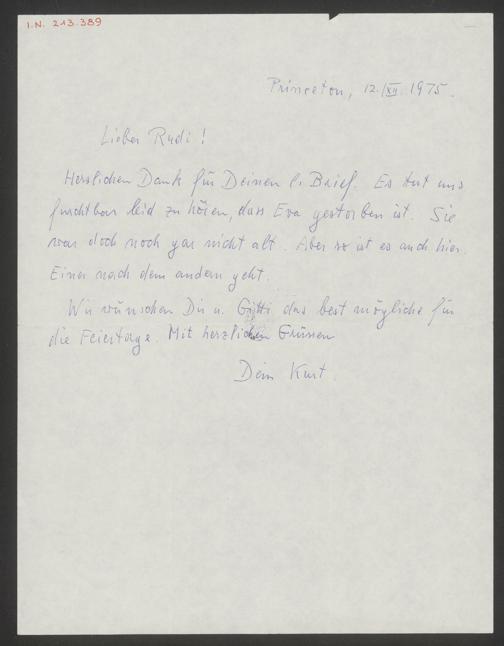 I.N. 213.389
Princeton, 12./XII. 1975.
Lieber Rudi!
Herzlichen Dank für Deinen l. Brief. Es tut uns
furchtbar leid zu hören, dass Eva gestorben ist. Sie
war doch noch gar nicht alt. Aber so ist es auch hier.
Einer nach dem andern geht.
Wir wünschen Dir u. Gitti das best mögliche für
die Feiertage. Mit herzlichen Grüssen
Dein Kurt.